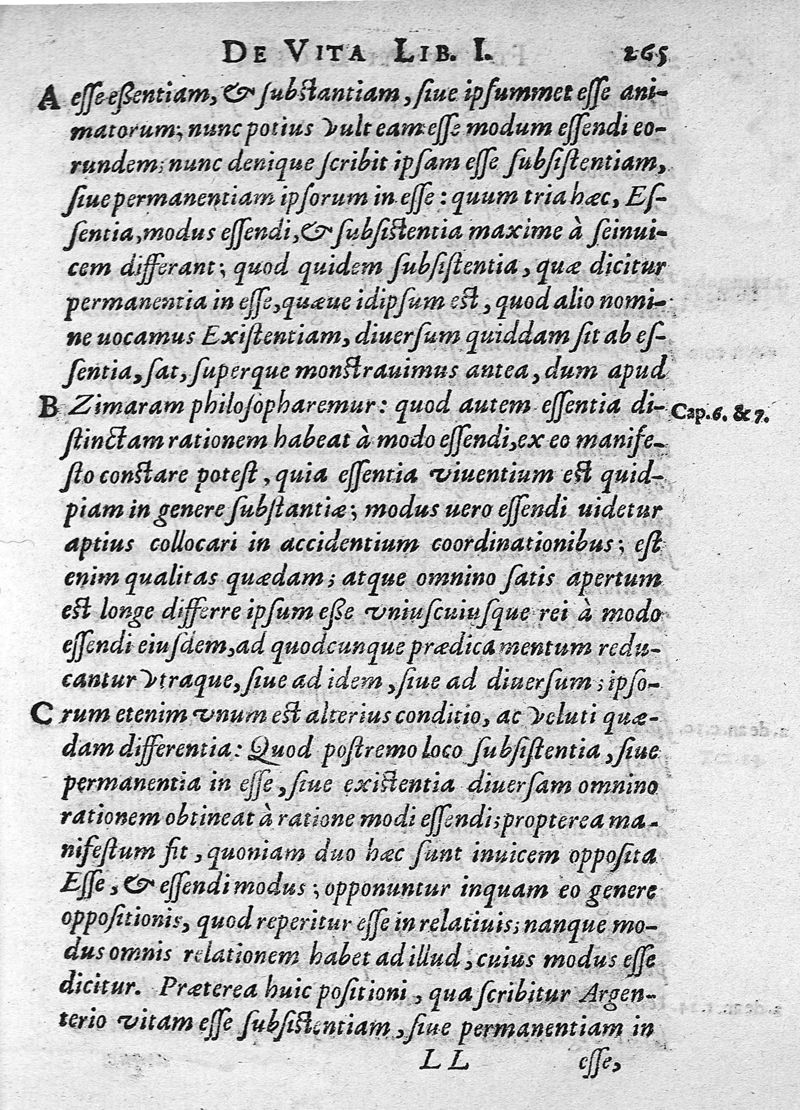 DE VITA LIB. I. 265
A esse eßentiam, & substantiam, siue ipsummet esse ani-
matorum; nunc potius vult eam esse modum essendi eo-
rundem; nunc denique scribit ipsam esse subsistentiam,
siue permanentiam ipsorum in esse: quum tria hæc, Es-
sentia, modus essendi, & subsistentia maxime à seinui-
cem differant; quod quidem subsistentia, quæ dicitur
permanentia in esse, quæue idipsum est, quod alio nomi-
ne uocamus Existentiam, diuersum quiddam sit ab es-
sentia, sat, superque monstrauimus antea, dum apud
B Zimaram philosopharemur: quod autem essentia di- Cap. 6. & 7.
stinctam rationem habeat à modo essendi, ex eo manife-
sto constare potest, quia essentia viuentium est quid-
piam in genere substantiæ; modus uero essendi uidetur
aptius collocari in accidentium coordinationibus; est
enim qualitas quædam; atque omnino satis apertum
est longe differre ipsum eße vniuscuiusque rei à modo
essendi eiusdem, ad quodcunque prædicamentum redu-
cantur vtraque, siue ad idem, siue ad diuersum; ipso-
C rum etenim vnum est alterius conditio, ac veluti quæ-
dam differentia: Quod postremo loco subsistentia, siue
permanentia in esse, siue existentia diuersam omnino
rationem obtineat à ratione modi essendi; propterea ma-
nifestum fit, quoniam duo hæc sunt inuicem opposita
Esse, & essendi modus; opponuntur inquam eo genere
oppositionis, quod reperitur esse in relatiuis; nanque mo-
dus omnis relationem habet ad illud, cuius modus esse
dicitur. Præterea huic positioni, qua scribitur Argen-
terio vitam esse subsistentiam, siue permanentiam in
LL esse,